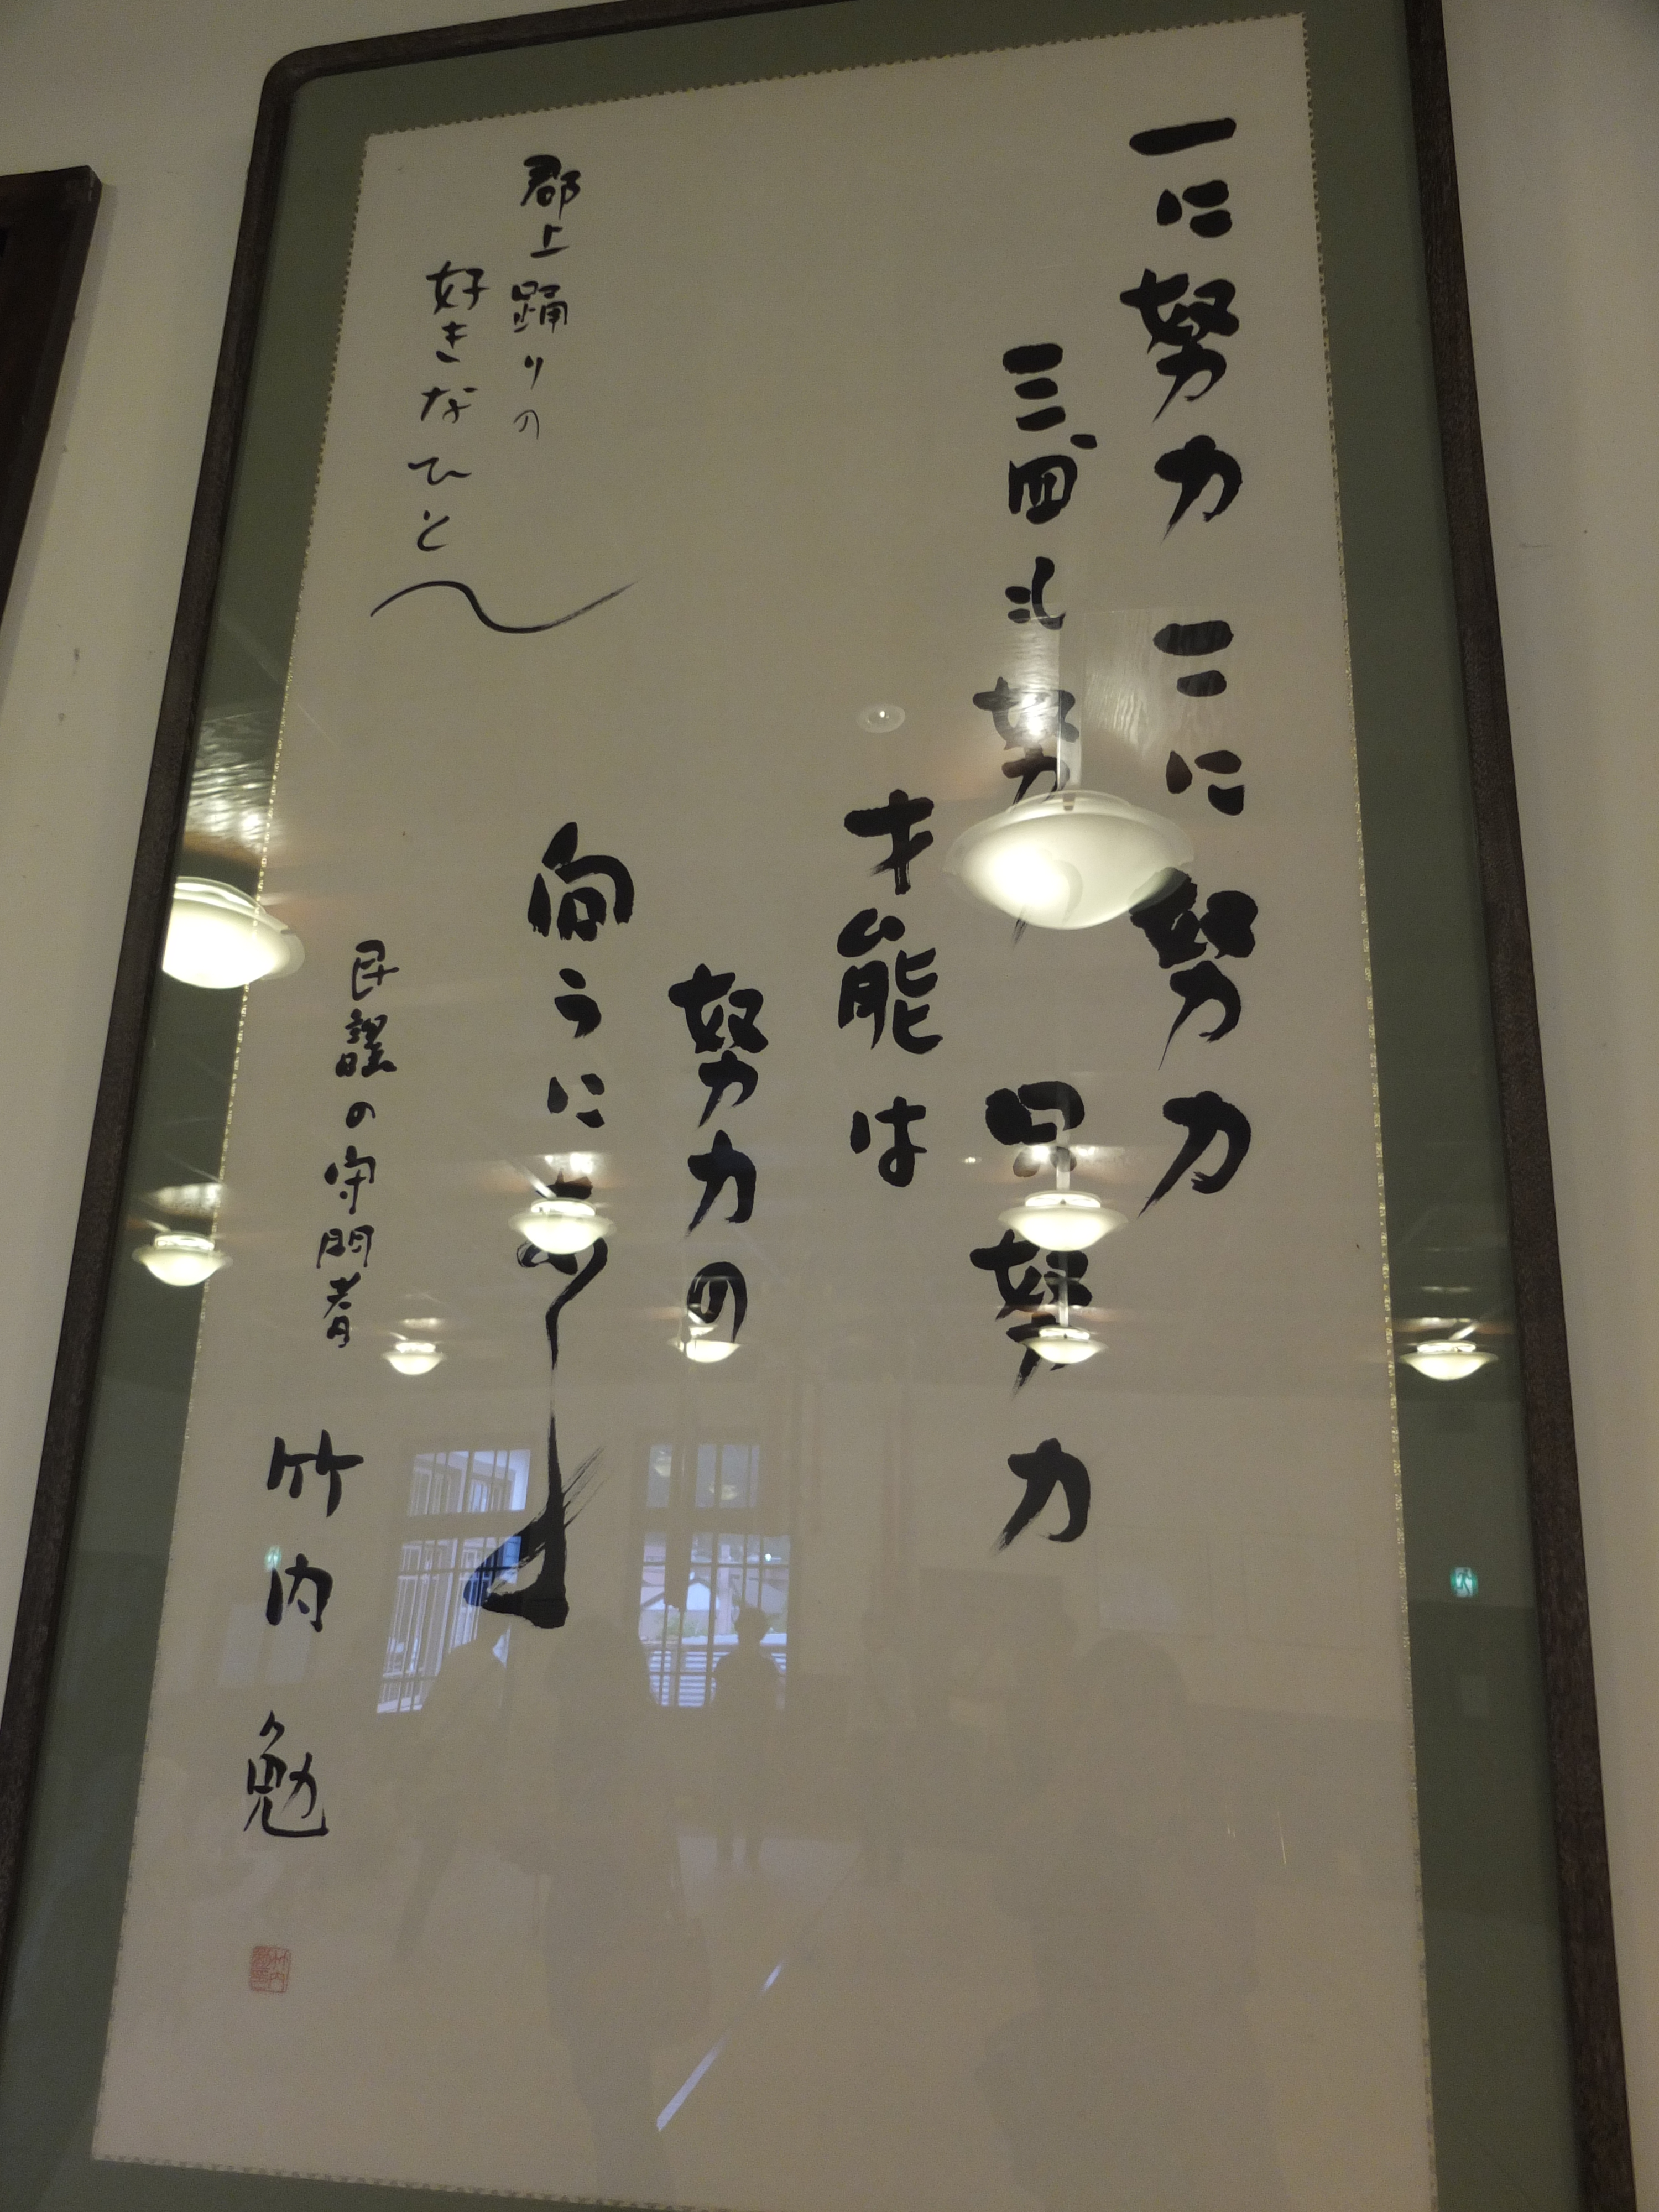 一に努力 二に努力
三、四も努力 只努力
才能は
努力の
向うにあり
郡上踊りの
好きなひと
民謡の守門者
竹内 勉